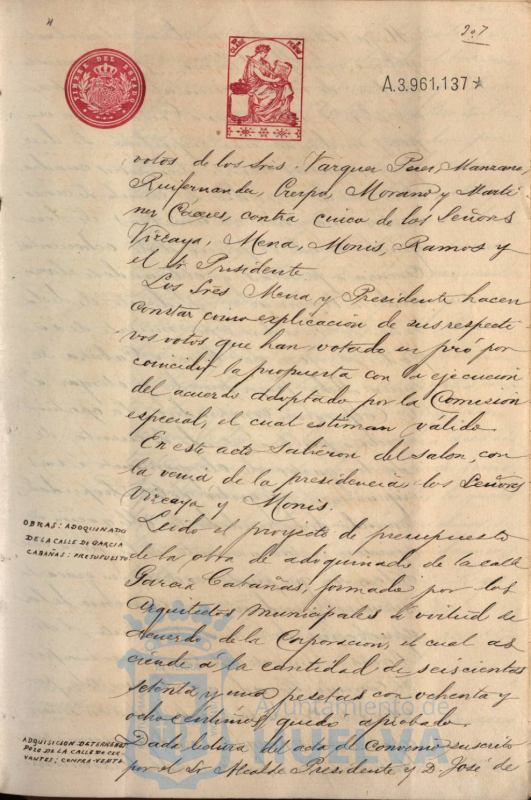 207
TIMBRE DEL ESTADO
A.3.961,137
votos de los Sres. Vazquez Perez, Manzano,
Ruifernandez, Crespo, Morano y Martí
nez Cáceres, contra cinco de los Señores
Vizcaya, Mena, Monis, Ramos y
el Sr Presidente
Los Sres Mena y Presidente hacen
constar como explicación de sus respecti
vos votos que han votado en pró por
coincidir la propuesta con la ejecucion
del acuerdo adoptado por la Comision
especial, el cual estiman válido
En este acto salieron del salon, con
la venia de la presidencia, los Señores
Vizcaya y Monis.
OBRAS: ADOQUINADO
DE LA CALLE DE GARCIA
CABAÑAS: PRESUPUESTO
Leido el proyecto de presupuesto
de la obra de adoquinado de la calle
García Cabañas, formado por los
Arquitectos municipales á virtud de
acuerdo de la Corporacion, el cual as
ciende á la cantidad de seiscientas
setenta y una pesetas con ochenta y
ocho centimos, quedó aprobado
ADQUISICION DE TERRENOS
POZO DE LA CALLE DE CER
VANTES: COMPRA-VENTA
Dada lectura del acta de Convenio suscrito
por el Sr Alcalde Presidente y D. José de
Ayuntamiento de
HUELVA